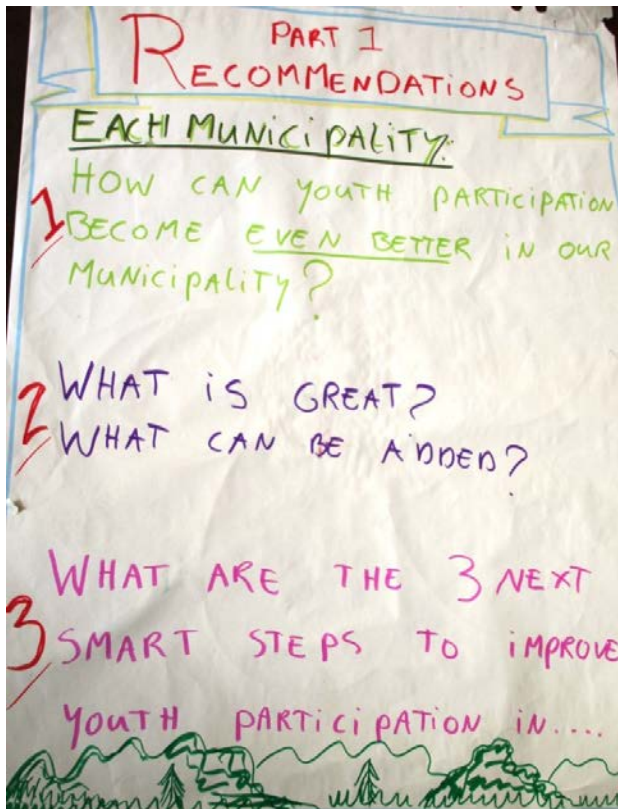 PART 1
RECOMMENDATIONS
EACH MUNICIPALITY:
HOW CAN YOUTH PARTICIPATION
1 BECOME EVEN BETTER IN OUR
MUNICIPALITY?
2 WHAT IS GREAT?
WHAT CAN BE ADDED?
WHAT ARE THE 3 NEXT
3 SMART STEPS TO IMPROVE
YOUTH PARTICIPATION IN....